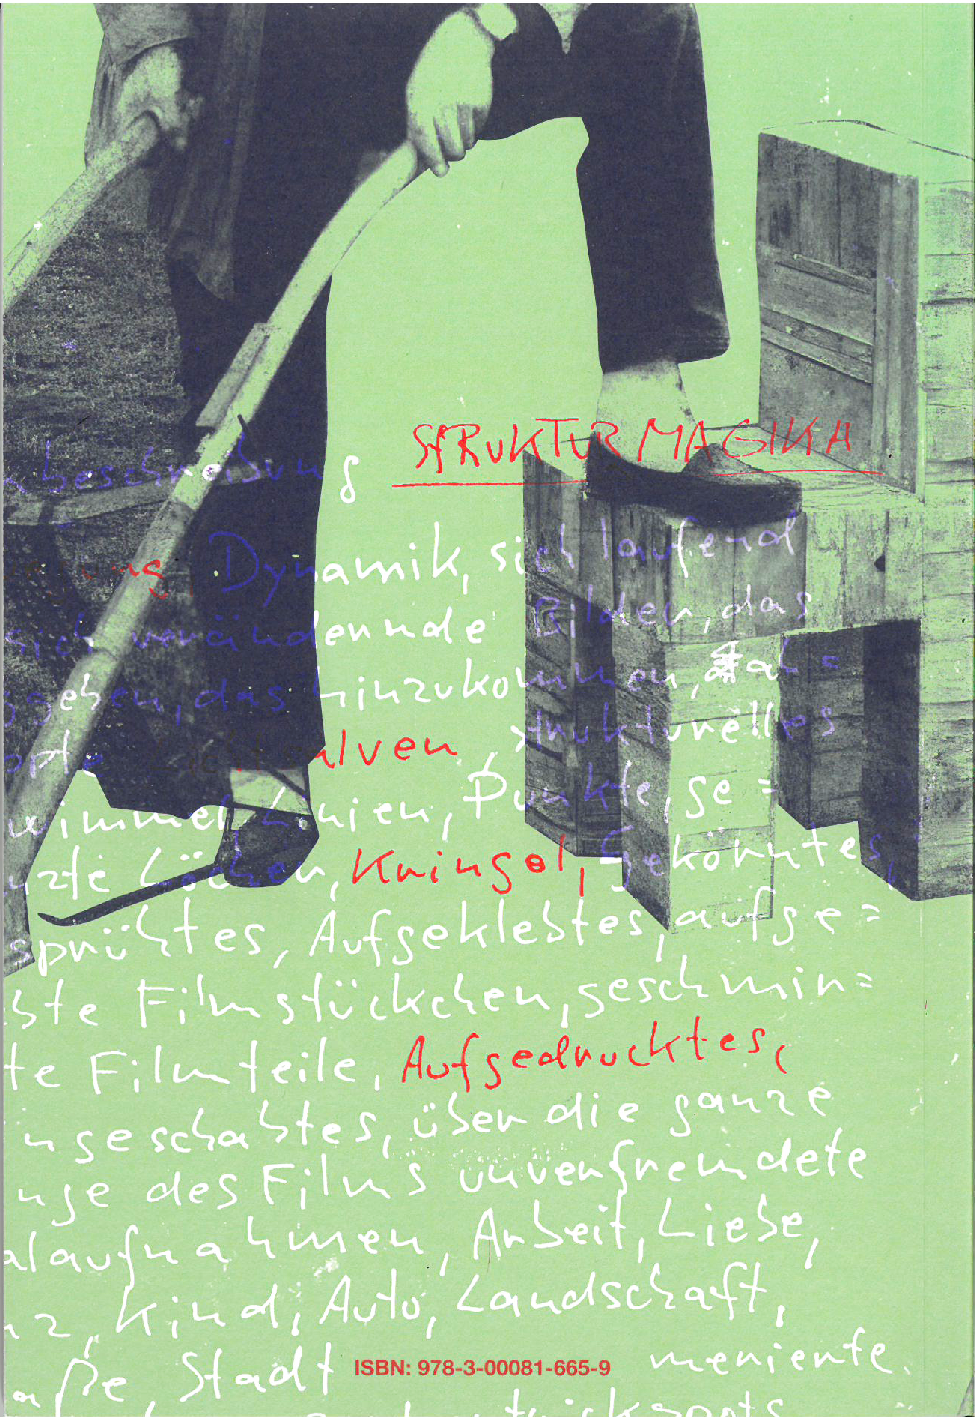 STRUKTUR MAGIKA
beschreibung
Dynamik, sich laufend
sich verändernde Bilder, das
geben, das hinzukommen,
alven, strukturelles
wimmel Linien, Punkte, ge=
nzte Löcher, Kringel, Gekörntes,
sprühtes, Aufgeklebtes, aufge=
bte Filmstückchen, geschmin=
te Filmteile, Aufgedrucktes,
ingeschabtes, über die ganze
nge des Films unverfremdete
alaufnahmen, Arbeit, Liebe,
nz, Kind, Auto, Landschaft,
aße, Stadt
ISBN: 978-3-00081-665-9